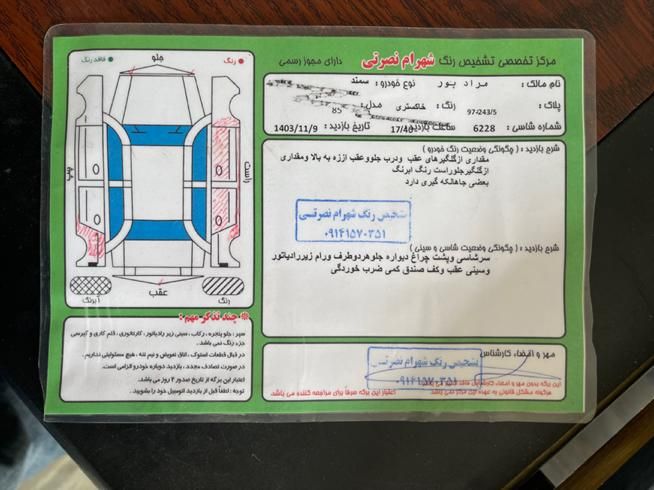 مرکز تخصصی تشخیص رنگ شهرام نصرتی دارای مجوز رسمی
نام مالک: مراد پور نوع خودرو: سمند
پلاک: 97-243/5 رنگ: خاکستری مدل: 85
شماره شاسی: 6228 ساعت بازدید: 17/40 تاریخ بازدید: 1403/11/9
شرح بازدید: (چگونگی وضعیت رنگ خودرو)
مقداری ازگلگیرهای عقب ودرب جلووعقب اززه به بالا ومقداری
ازگلگیرجلوراست رنگ ابرنگ
بعضی جاهالکه گیری دارد
تشخیص رنگ شهرام نصرتی
۰۹۱۴۱۵۷۰۳۵۱
شرح بازدید: (چگونگی وضعیت شاسی و سینی)
سرشاسی وپشت چراغ دیواره جلوهردوطرف ورام زیررادیاتور
وسینی عقب وکف صندق کمی ضرب خوردگی
مهر و امضاء کارشناس
تشخیص رنگ شهرام نصرتی
۰۹۱۴۱۵۷۰۳۵۱
این برگه بدون مهر و امضاء کارشناس فاقد
هرگونه مشکل قانونی به عهده این مرکز نمی باشد
اعتبار این برگه صرفاً برای مراجعه کننده می باشد.
فاقد رنگ
جلو
رنگ
چپ
راست
عقب
آبرنگ
رنگ
چند تذکر مهم:
سپر، جلو پنجره، رکاب، سینی زیر رادیاتور، کارتانوری، قلم کاری و لیسی
جزء رنگ نمی باشد.
در قبال قطعات استوک، اتاق تعویض و نیم تنه، هیچ مسئولیتی نداریم.
در صورت تصادف مجدد، بازدید دوباره خودرو الزامی است.
اعتبار این برگه از تاریخ صدور ۲ روز می باشد.
توجه: لطفاً قبل از بازدید اتومبیل خود را بشویید.